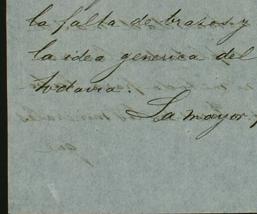 la falta de brazos y
la idea generica del
todavia.
La mayor